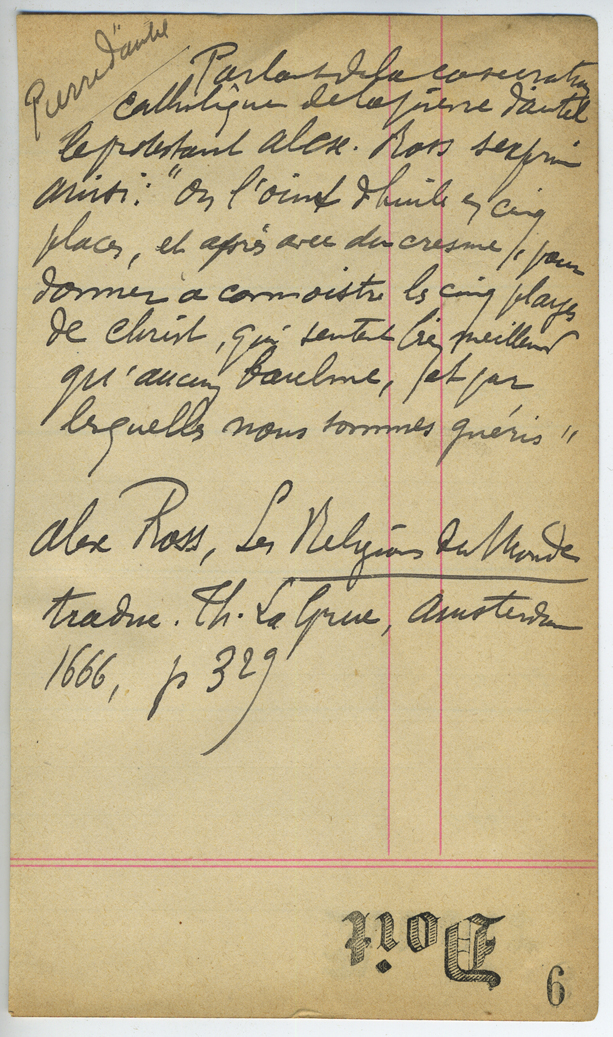 Pierre d'autel
Parlant de la consecration
catholique de la pierre d'autel
le protestant Alex. Ross s'exprime
ainsi : "On l'oint d'huile en cinq
places, et après avec du cresme, pour
donner a connoistre les cinq playes
de Christ, qui sentent bien meilleur
qu'aucun baulme, et par
lesquelles nous sommes guéris"
Alex Ross, Les Religions du Monde
traduc. Th. La Grue, Amsterdam
1666, p 329
Doit
6